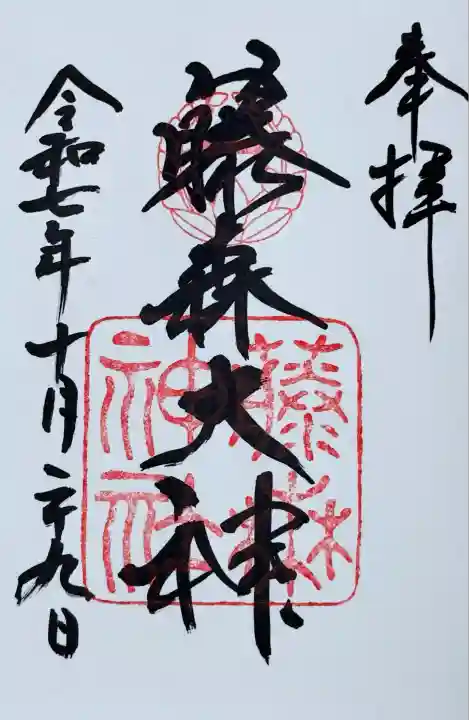 奉拝
藤森大神
藤森
神社
令和七年十月二十九日